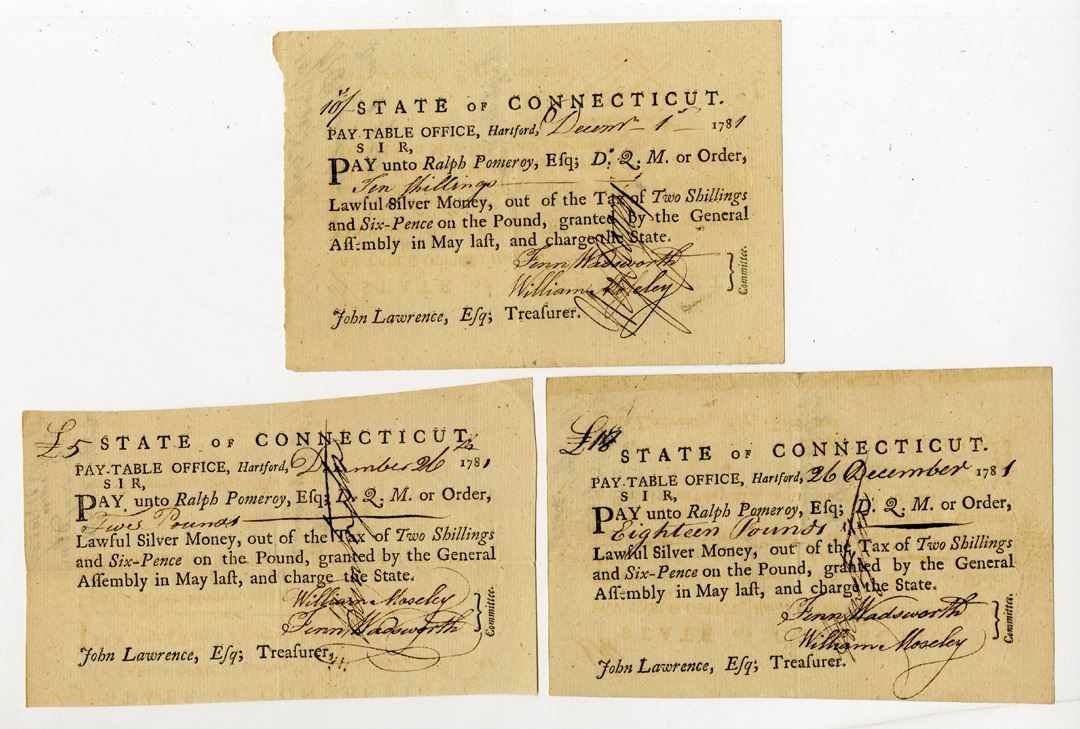 10/ STATE OF CONNECTICUT.
PAY-TABLE OFFICE, Hartford, Decemr 1st 1781
SIR,
PAY unto Ralph Pomeroy, Eſq; D. Q. M. or Order,
Ten ſhillings
Lawful Silver Money, out of the Tax of Two Shillings
and Six-Pence on the Pound, granted by the General
Aſſembly in May laſt, and charge the State.
Fenn Wadsworth
William Moseley
Committee.
John Lawrence, Eſq; Treaſurer.
£5 STATE OF CONNECTICUT.
PAY-TABLE OFFICE, Hartford, December 26th 1781
SIR,
PAY unto Ralph Pomeroy, Eſq; D. Q. M. or Order,
Five Pounds
Lawful Silver Money, out of the Tax of Two Shillings
and Six-Pence on the Pound, granted by the General
Aſſembly in May laſt, and charge the State.
William Moseley
Fenn Wadsworth
Committee.
John Lawrence, Eſq; Treaſurer.
£18 STATE OF CONNECTICUT.
PAY-TABLE OFFICE, Hartford, 26 December 1781
SIR,
PAY unto Ralph Pomeroy, Eſq; D. Q. M. or Order,
Eighteen Pounds
Lawful Silver Money, out of the Tax of Two Shillings
and Six-Pence on the Pound, granted by the General
Aſſembly in May laſt, and charge the State.
Fenn Wadsworth
William Moseley
Committee.
John Lawrence, Eſq; Treaſurer.